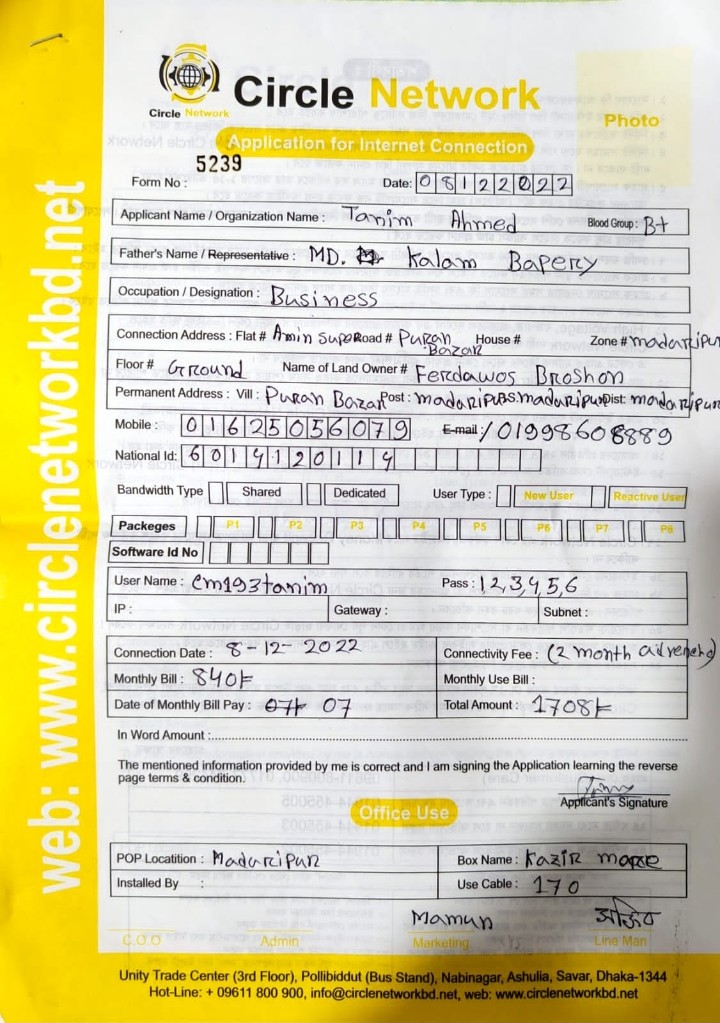 Circle Network
Circle Network
Photo
Application for Internet Connection
5239
Form No : Date: 08122022
Applicant Name / Organization Name : Tanim Ahmed Blood Group: B+
Father's Name / Representative : MD. Kalam Bapery
Occupation / Designation : Business
Connection Address : Flat # Amin Super Road # Puran Bazar House # Zone # madaripur
Floor # Ground Name of Land Owner # Ferdawos Broshon
Permanent Address : Vill : Puran Bazar Post : madaripur P.S. madaripur Dist: madaripur
Mobile : 01625056079 E-mail : / 01998608889
National Id: 6014120114
Bandwidth Type Shared Dedicated User Type : New User Reactive User
Packeges P1 P2 P3 P4 P5 P6 P7 P8
Software Id No
User Name : cm193tanim Pass : 1,2,3,4,5,6
IP : Gateway : Subnet :
Connection Date : 8-12-2022 Connectivity Fee : (2 month advenced)
Monthly Bill : 840/= Monthly Use Bill :
Date of Monthly Bill Pay : 07/= 07 Total Amount : 1708/=
In Word Amount :
The mentioned information provided by me is correct and I am signing the Application learning the reverse
page terms & condition.
Applicant's Signature
Office Use
POP Locatition : Madaripur Box Name : Kazir more
Installed By : Use Cable : 170
Mamun
C.O.O Admin Marketing Line Man
Unity Trade Center (3rd Floor), Pollibiddut (Bus Stand), Nabinagar, Ashulia, Savar, Dhaka-1344
Hot-Line: + 09611 800 900, info@circlenetworkbd.net, web: www.circlenetworkbd.net
web: www.circlenetworkbd.net